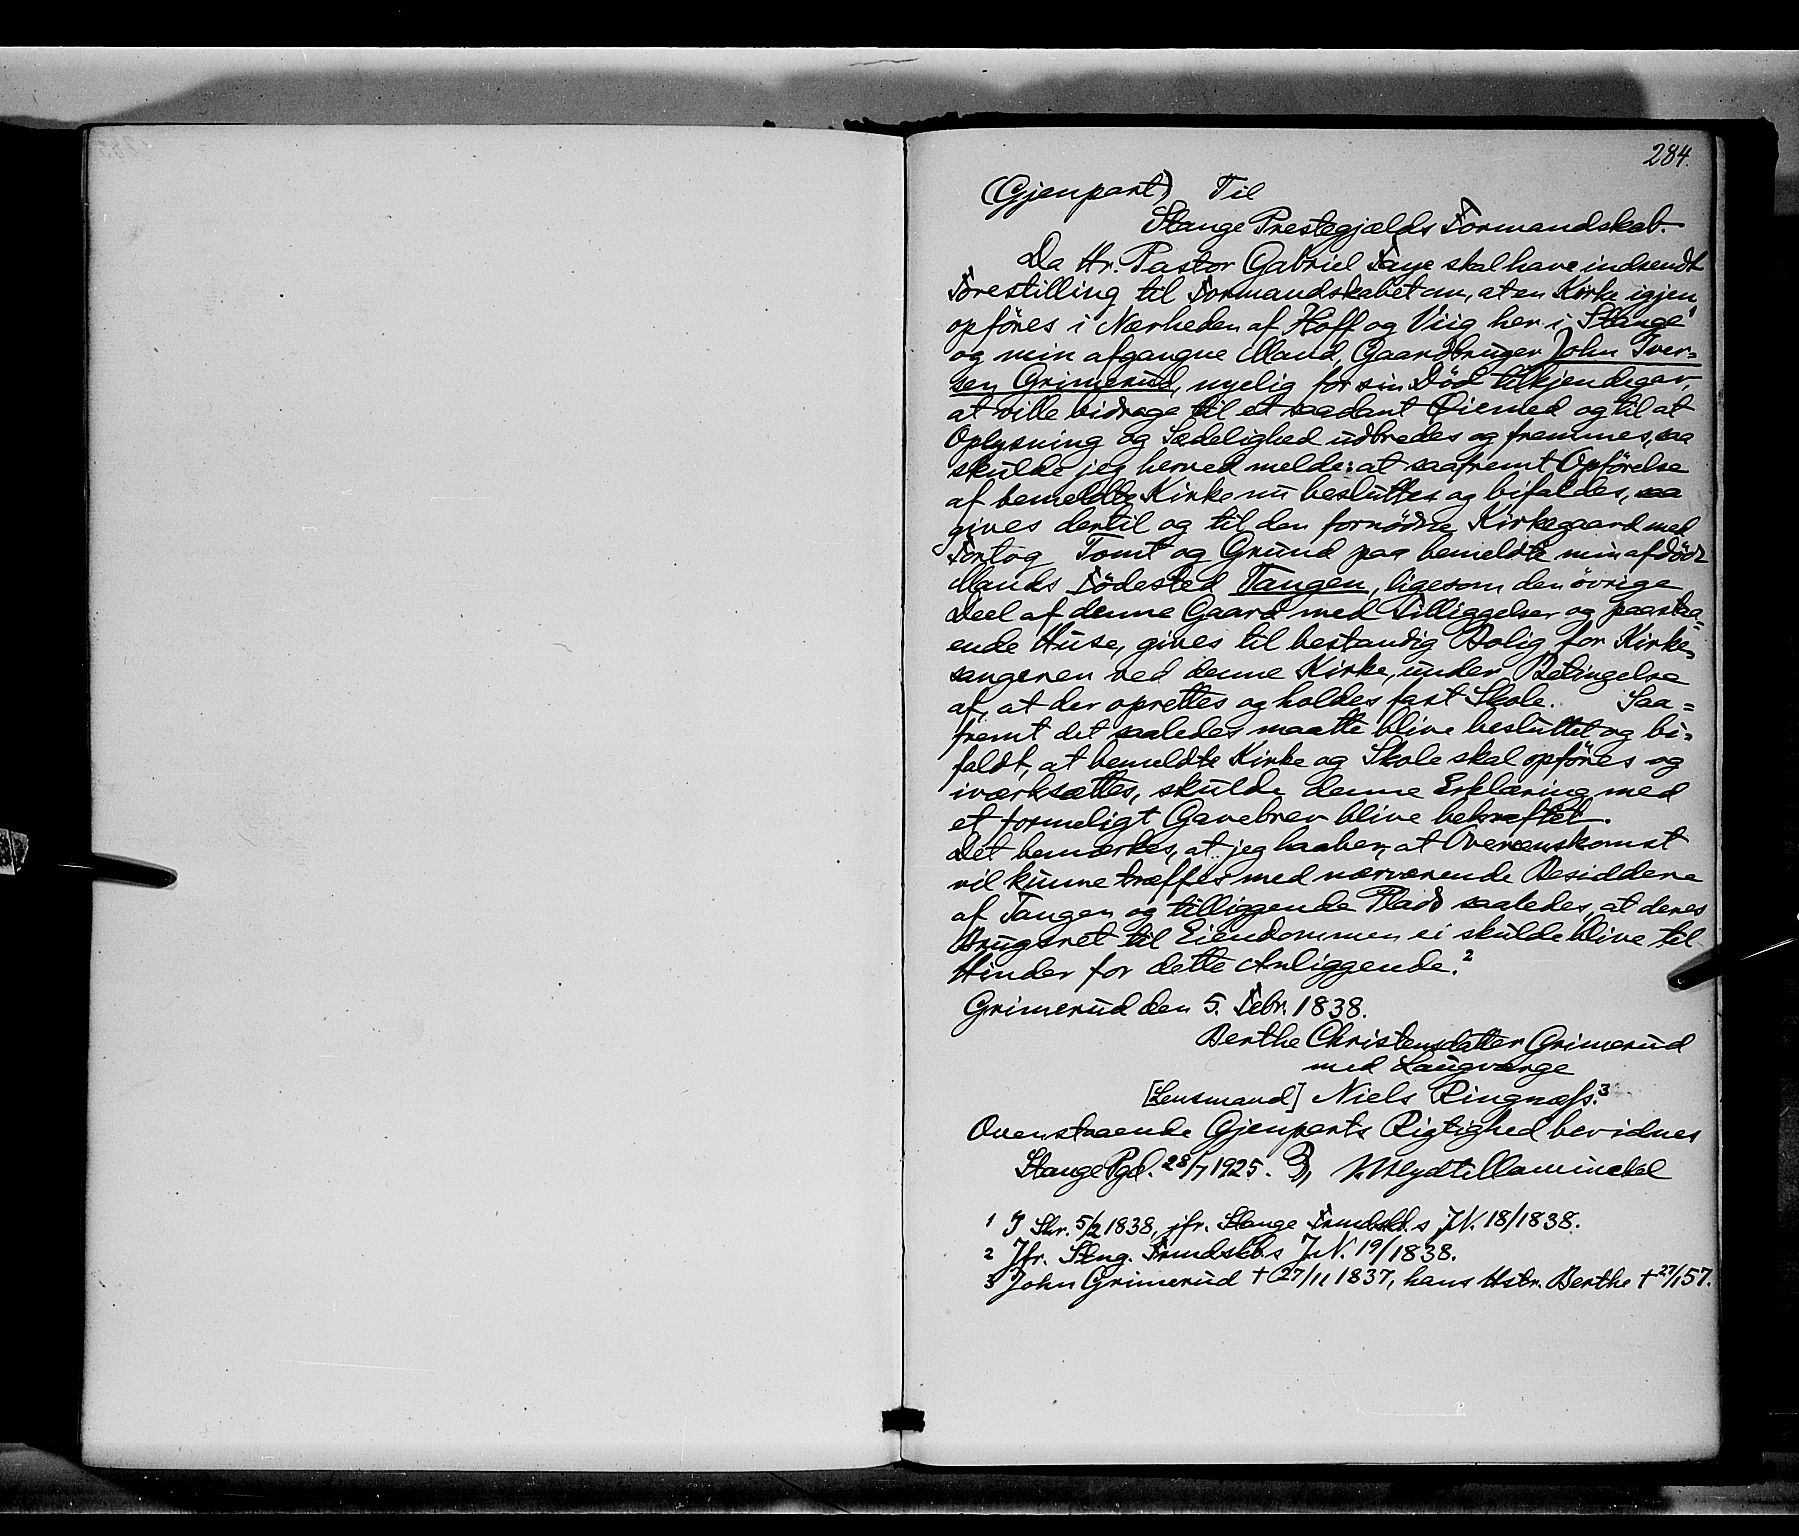 284.
(Gjenpart) Til
Stange Prestegjælds Formandskab.
Da Hr. Pastor Gabriel Faye skal have indsendt
Forestilling til Formandskabet om, at en Kirke igjen
opføres i Nærheden af Hoff og Viig her i Stange¹
og min afgangne Mand, Gaardbruger John Iver=
sen Grimerud, nyelig for sin Død tilkjendegav,
at ville bidrage til et saadant Øiemed og til at
Oplysning og Sædelighed udbredes og fremmes, saa
skulde jeg herved melde: at saafremt Opførelse
af bemeldte Kirke nu besluttes og bifaldes, saa
gives dertil og til den fornødne Kirkegaard med
Fortog Tomt og Grund paa bemeldte min afdøde
Mands Fødested Tangen, ligesom den øvrige
Deel af denne Gaard med Tilliggelser og paastaa=
ende Huse, gives til bestandig Bolig for Kirke=
sangeren ved denne Kirke, under Betingelse
af, at der oprettes og holdes fast Skole. Saa=
fremt det saaledes maatte blive besluttet og bi=
faldt, at bemeldte Kirke og Skole skal opføres og
iværksættes, skulde denne Erklæring med
et formeligt Gavebrev blive bekræftet.
Det bemærkes, at jeg haaber, at Overeenskomst
vil kunne træffes med nærværende Besiddere
af Tangen og tilliggende Plads saaledes, at deres
Brugsret til Eiendommen ei skulde blive til
Hinder for dette Anliggende.²
Grimerud den 5. Febr. 1838.
Berthe Christensdatter Grimerud
med Laugværge
[Lensmand] Niels Ringnæss.³
Ovenstaaende Gjenparts Rigtighed bevidnes
Stange Pgd. 28/7 1925.
1 I Skr. 5/2 1838, jfr. Stange Frmdskb.s J.N. 18/1838.
2 Jfr. Stng. Frmdskb.s J.N. 19/1838.
3 John Grimerud † 27/11 1837, hans Hstr. Berthe † 27/1 57.